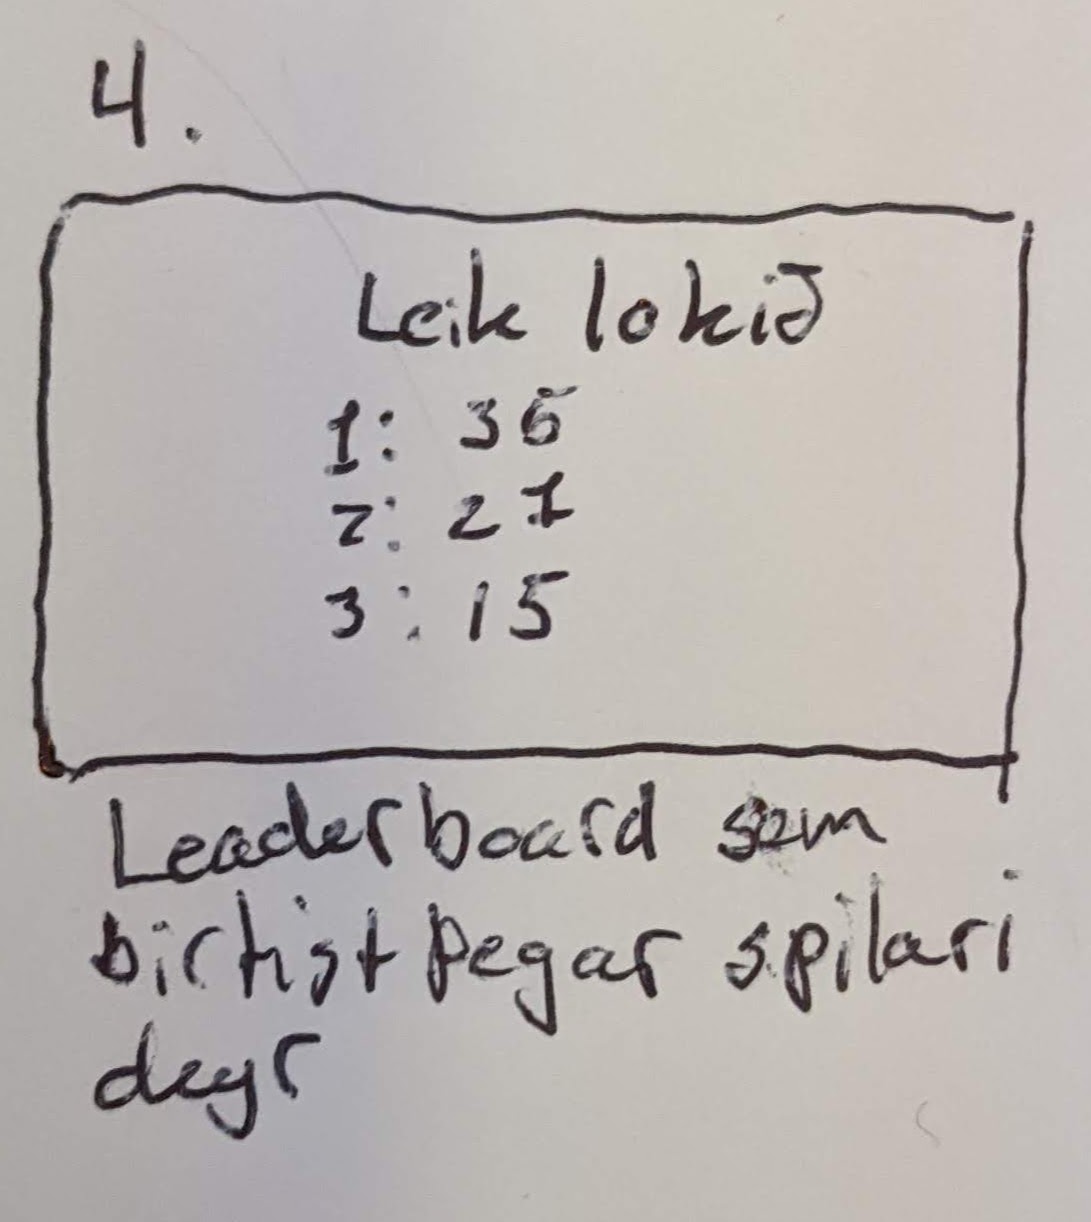 4.
Leik lokið
1: 36
2: 21
3: 15
Leaderboard sem
birtist þegar spilari
deyr